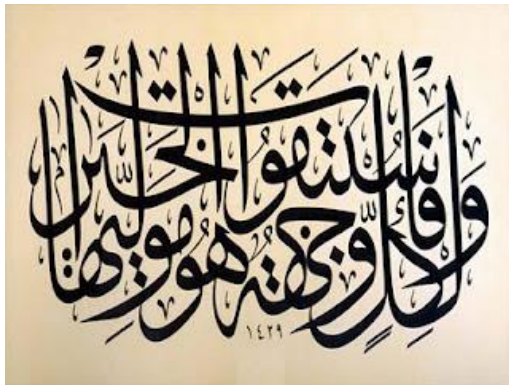 وَلِكُلٍّ وِّجْهَةٌ هُوَ مُوَلِّيهَا
فَاسْتَبِقُوا الْخَيْرَاتِ
١٤٢٩